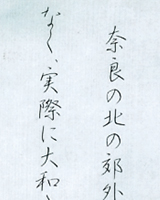 奈良の北の郊外
なく、実際に大和